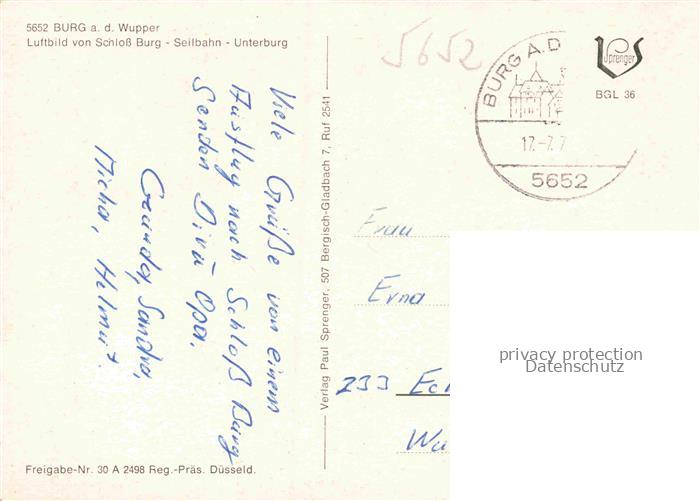 5652 BURG a. d. Wupper
Luftbild von Schloß Burg - Seilbahn - Unterburg
5652
BURG A.D
17.-7.7
5652
Sprenger
BGL 36
Viele Grüße von einem
Ausflug nach Schloß Burg
Senden Dir Opa,
Sandra,
Micha, Helmut.
Verlag Paul Sprenger, 507 Bergisch-Gladbach 7, Ruf 2541
Frau
Erna
233 Eck
privacy protection
Datenschutz
Freigabe-Nr. 30 A 2498 Reg.-Präs. Düsseld.